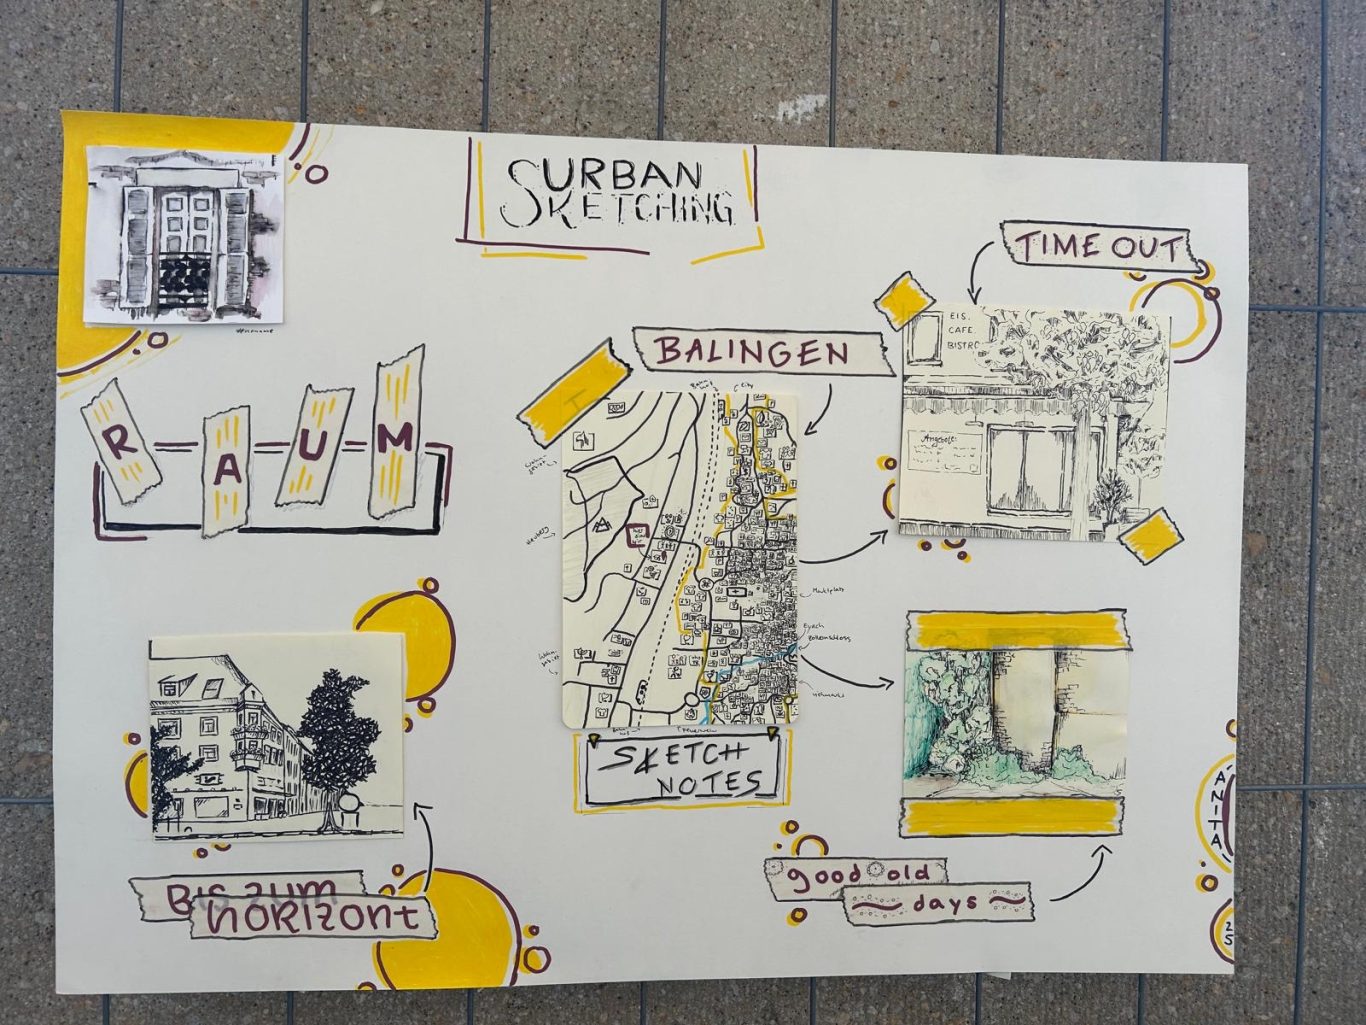 URBAN
SKETCHING
TIME OUT
BALINGEN
EIS
CAFE
BISTRO
Angebote:
RAUM
Marktplatz
Eyach
Zollernschloss
SKETCH
NOTES
BIS ZUM
HORIZONT
good old
days
ANITA
25